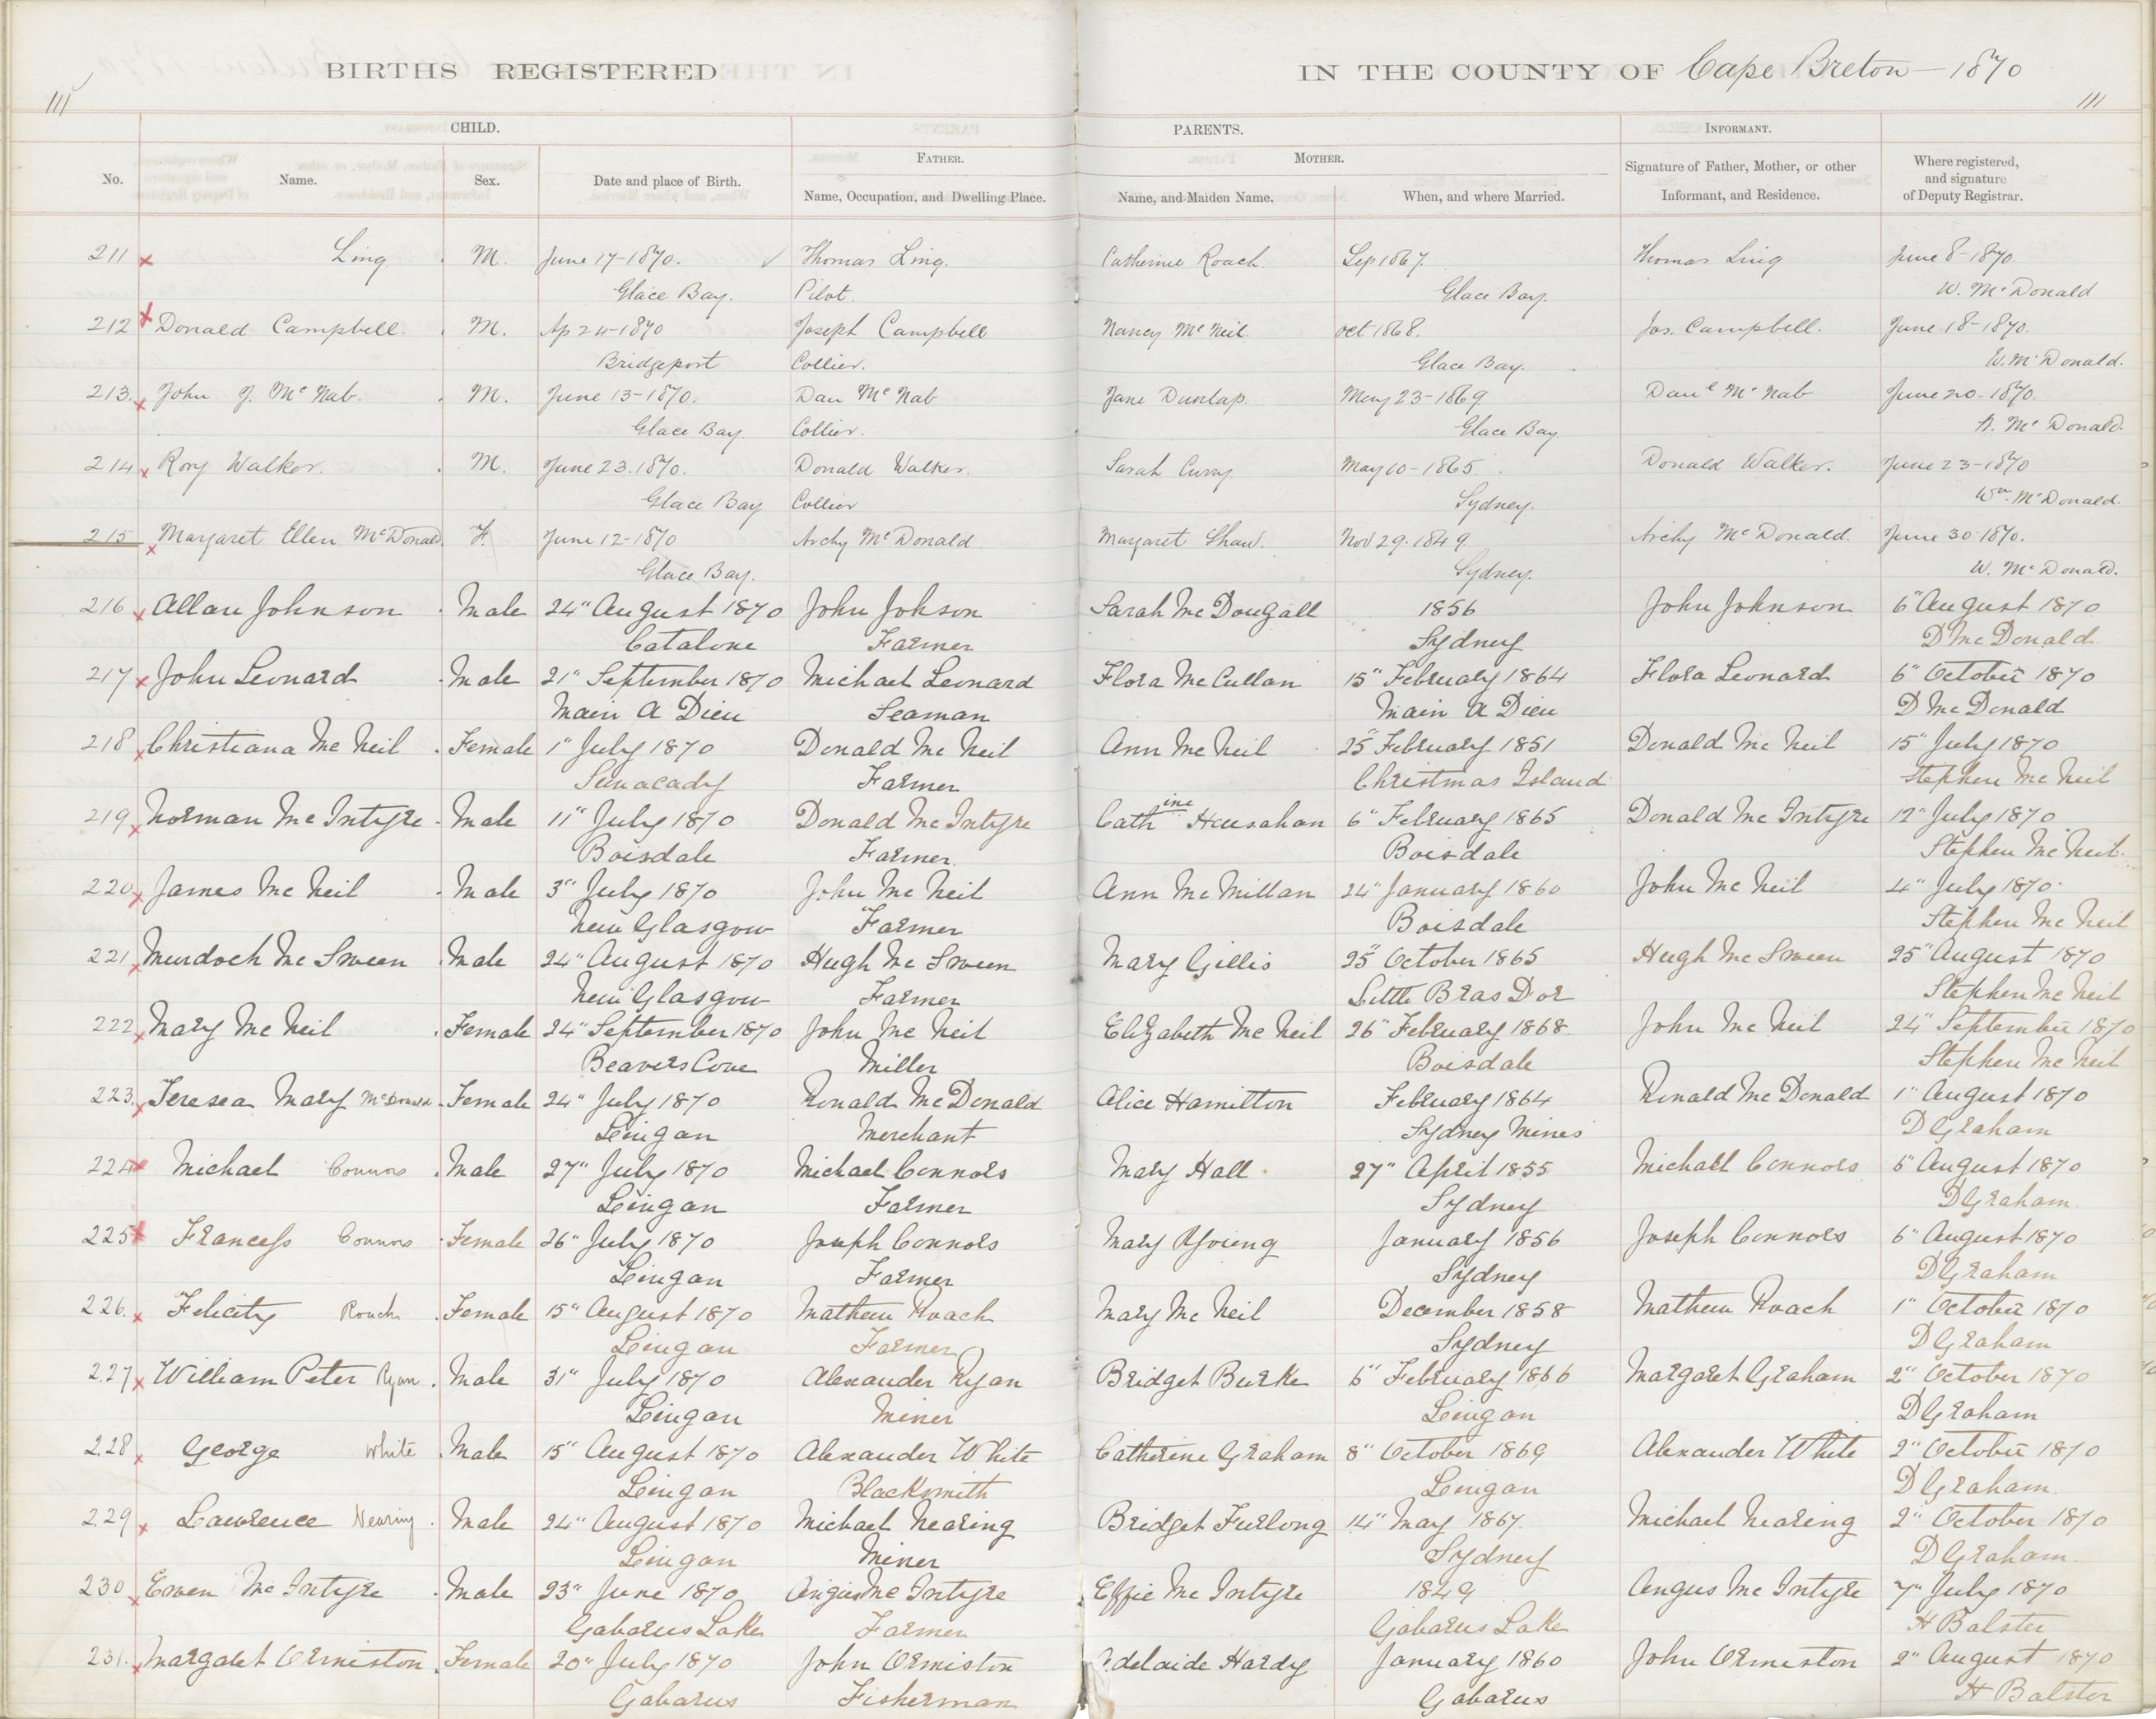 BIRTHS REGISTERED IN THE COUNTY OF Cape Breton — 1870
111 111
CHILD. PARENTS. INFORMANT.
FATHER. MOTHER.
No. Name. Sex. Date and place of Birth. Name, Occupation, and Dwelling Place. Name, and Maiden Name. When, and where Married. Signature of Father, Mother, or other Informant, and Residence. Where registered, and signature of Deputy Registrar.
211 Ling M. June 17-1870. Thomas Ling. Catherine Roach. Sep 1867. Thomas Ling June 8-1870
Glace Bay. Pilot. Glace Bay. W. McDonald
212 Donald Campbell M. Ap 24-1870 Joseph Campbell Nancy McNeil Oct 1868. Jos. Campbell. June 18-1870.
Bridgeport Collier. Glace Bay. W. McDonald.
213 John J. McNab. M. June 13-1870. Dan McNab Jane Dunlap. May 23-1869 Danl McNab June 20-1870.
Glace Bay Collier. Glace Bay A. McDonald.
214 Rory Walker. M. June 23.1870. Donald Walker. Sarah Curry May 10-1865. Donald Walker. June 23-1870
Glace Bay Collier Sydney. Wm. McDonald.
215 Margaret Ellen McDonald F. June 12-1870 Archy McDonald Margaret Shaw. Nov 29.1849 Archy McDonald. June 30-1870.
Glace Bay. Sydney. W. McDonald.
216 Allan Johnson Male 24" August 1870 John Johson Sarah McDougall 1856 John Johnson 6" August 1870
Catalone Farmer Sydney D McDonald
217 John Leonard Male 21" September 1870 Michael Leonard Flora McCullan 15" February 1864 Flora Leonard 6" October 1870
Main A Dieu Seaman Main A Dieu D McDonald
218 Christiana McNeil Female 1" July 1870 Donald McNeil Ann McNeil 25" February 1851 Donald McNeil 15" July 1870
Sunacady Farmer Christmas Island Stephen McNeil
219 Norman McIntyre Male 11" July 1870 Donald McIntyre Cathine 6" February 1865 Donald McIntyre 12" July 1870
Boisdale Farmer Boisdale Stephen McNeil
220 James McNeil Male 3" July 1870 John McNeil Ann McMillan 24" January 1860 John McNeil 4" July 1870
New Glasgow Farmer Boisdale Stephen McNeil
221 Murdoch McSween Male 24" August 1870 Hugh McSween Mary Gillis 25" October 1865 Hugh McSween 25" August 1870
New Glasgow Farmer Little Bras Dor Stephen McNeil
222 Mary McNeil Female 24" September 1870 John McNeil Elizabeth McNeil 26" February 1868 John McNeil 24" September 1870
Beavers Cove Miller Boisdale Stephen McNeil
223 Teresea Mary McDonald Female 24" July 1870 Ronald McDonald Alice Hamilton February 1864 Ronald McDonald 1" August 1870
Lingan Merchant Sydney Mines D Graham
224 Michael Connors Male 27" July 1870 Michael Connors Mary Hall 27" April 1855 Michael Connors 6" August 1870
Lingan Farmer Sydney D Graham
225 Francess Connors Female 26" July 1870 Joseph Connors Mary Young January 1856 Joseph Connors 6" August 1870
Lingan Farmer Sydney D Graham
226. Felicity Roach Female 15" August 1870 Mathew Roach Mary McNeil December 1858 Mathew Roach 1" October 1870
Lingan Farmer Sydney D Graham
227 William Peter Ryan Male 31" July 1870 Alexander Ryan Bridget Burke 6" February 1866 Margaret Graham 2" October 1870
Lingan Miner Lingan D Graham
228 George White Male 15" August 1870 Alexander White Catherine Graham 8" October 1869 Alexander White 2" October 1870
Lingan Blacksmith Lingan D Graham
229 Lawrence Nearing Male 24" August 1870 Michael Nearing Bridget Furlong 14" May 1867. Michael Nearing 2" October 1870
Lingan Miner Sydney D Graham
230 Ewen McIntyre Male 23" June 1870 Angus McIntyre Effie McIntyre 1849 Angus McIntyre 7" July 1870
Gabarus Lake Farmer Gabarus Lake H Balster
231. Margaret Ormiston Female 20" July 1870 John Ormiston Adelaide Hardy January 1860 John Ormiston 2" August 1870
Gabarus Fisherman Gabarus H Balster